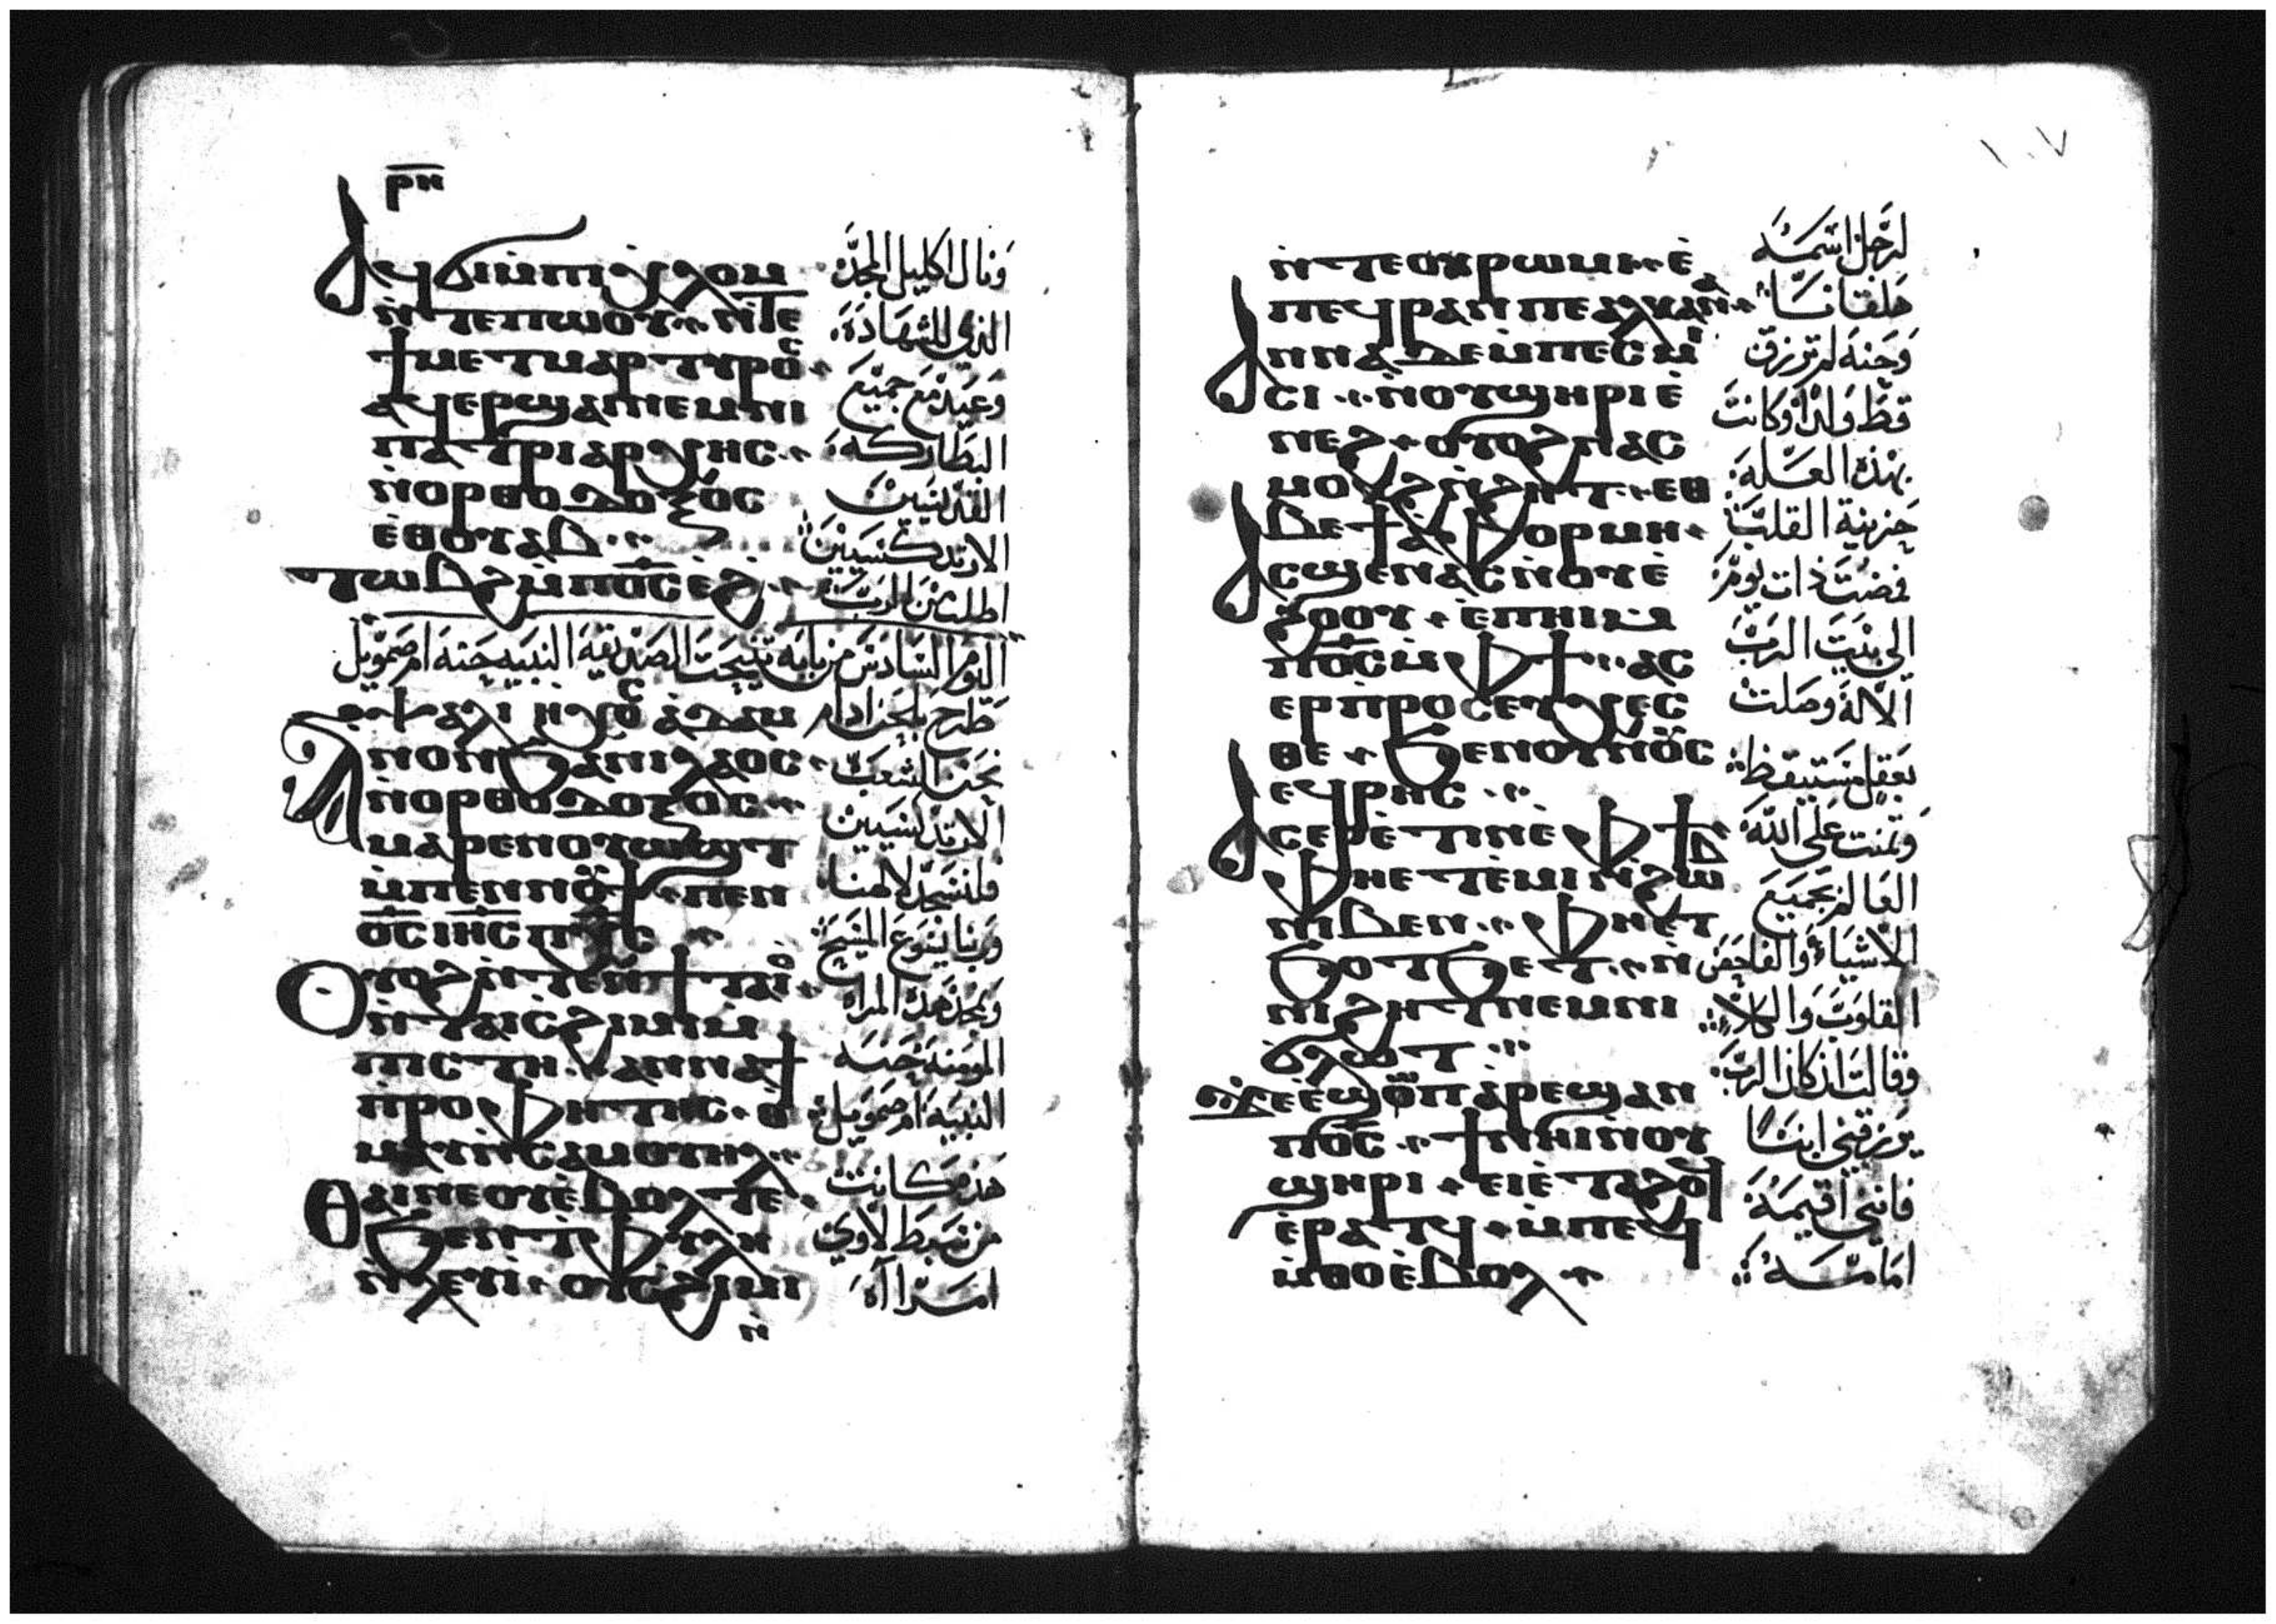 ⲣⲏ
ⲁϥϭⲓ ⲙ̀ⲡⲓⲭⲗⲟⲙ
ⲛ̀ⲧⲉⲡⲱⲟⲩ ⲛ̀ⲧⲉ
ϯⲙⲉⲧⲙⲁⲣⲧⲩⲣⲟⲥ
ⲁϥⲉⲣϣⲁⲓ ⲛⲉⲙ ⲛⲓ
ⲡⲁⲧⲣⲓⲁⲣⲭⲏⲥ
ⲛ̀ⲟⲣⲑⲟⲇⲟⲝⲟⲥ
ⲉ̀ⲑⲟⲩⲁⲃ
ⲧⲱⲃϩ ⲙ̀ⲡⲟ̅ⲥ̅ ⲉ̀ϩ
ونال اكليل المجد
الذي للشهادة
وعيد مع جميع
البطاركة
القديسين
الارتدكسيين
اطلب من الرب
اليوم السادس من بابه تنيحت الصديقة النبيه حنه ام صمويل
ⲁⲇⲁⲙ طرح بلحن ادام
ⲁⲛⲟⲛ ϧⲁ ⲛⲓⲗⲁⲟⲥ
ⲛ̀ⲟⲣⲑⲟⲇⲟⲝⲟⲥ
ⲙⲁⲣⲉⲛⲟⲩⲱϣⲧ
ⲙ̀ⲡⲉⲛⲛⲟⲩϯ ⲡⲉⲛ
ⲟ̅ⲥ̅ ⲓⲏ̅ⲥ̅ ⲡⲭ̅ⲥ̅
ⲟⲩⲟϩ ⲛ̀ⲧⲉⲛϯⲧⲁⲓⲟ
ⲛ̀ⲧⲁⲓⲥϩⲓⲙⲓ ⲙ̀
ⲡⲓⲥⲧⲏ ⲁⲛⲛⲁ ϯ
ⲡⲣⲟⲫⲏⲧⲏⲥ ⲑ
ⲙⲁⲩ ⲛ̀ⲥⲁⲙⲟⲩⲏⲗ
ⲑⲁⲓ ⲛⲉ ⲟⲩⲉ̀ⲃⲟⲗ ⲧⲉ
ϧⲉⲛ ⲧ̀ⲫⲩⲗⲏ
ⲛ̀ⲗⲉⲩⲓ ⲟⲩⲥϩⲓⲙⲓ
ⲛ̀
نحن الشعب
الارتدكسيين
فلنسجد لالهنا
وربنا يسوع المسيح
ونمجد هذه المراه
المومنه حنه
النبيه ام صمويل
هذه كانت
من سبط لاوي
امراه
١٠٧
ⲛ̀ⲧⲉ ⲟⲩⲣⲱⲙⲓ ⲉ̀
ⲡⲉϥⲣⲁⲛ ⲡⲉ ⲁⲗⲕⲁⲛ
ⲁⲛⲛⲁ ⲇⲉ ⲙ̀ⲡⲉⲥⲙⲓ
ⲥⲓ ⲛ̀ⲟⲩϣⲏⲣⲓ ⲉ̀
ⲛⲉϩ ⲟⲩⲟϩ ⲛⲁⲥ
ⲙⲟⲕϩ ⲛ̀ϩⲏⲧ ⲉⲑ
ⲃⲉ ⲧⲁⲓⲁ̀ⲫⲟⲣⲙⲏ
ⲁⲥϣⲉⲛⲁⲥ ⲛ̀ⲟⲩⲉ̀
ϩⲟⲟⲩ ⲉ̀ⲡⲏⲓ ⲙ̀
ⲡⲟ̅ⲥ̅ ⲙ̀ⲫϯ ⲁⲥ
ⲉⲣⲡⲣⲟⲥⲉⲩⲭⲉⲥ
ⲑⲉ ϧⲉⲛ ⲟⲩⲛⲟⲩⲥ
ⲉϥⲣⲏⲥ
ⲁⲥⲉⲣⲉ̀ⲧⲓⲛ ⲉ̀ⲫϯ
ⲫⲏⲉⲧⲉ̀ⲙⲓ ⲛ̀ϩⲱⲃ
ⲛⲓⲃⲉⲛ ⲫⲏⲉⲧ
ϧⲟⲧϧⲉⲧ ⲛ̀
ⲛⲓϩⲏⲧ ⲛⲉⲙ ⲛⲓ
ϭⲗⲱⲧ
ϫⲉ ⲉϣⲱⲡ ⲁⲣⲉϣⲁⲛ
ⲡⲟ̅ⲥ̅ ϯ ⲛⲏⲓ ⲛ̀ⲟⲩ
ϣⲏⲣⲓ ⲉⲓⲉ̀ⲧⲁϩⲟϥ
ⲉ̀ⲣⲁⲧϥ ⲙ̀ⲡⲉϥ
ⲙ̀ⲑⲟ ⲉ̀ⲃⲟⲗ
لرجل اسمه
هلقانا
وحنه لم ترزق
قط ولدا وكانت
بهذه العله
حزينة القلب
فمضت ذات يوم
الى بيت الرب
الاله وصلت
بعقل مستيقظ
وتمنت على الله
العالم بجميع
الاشياء والفاحص
القلوب والكلا
وقالت اذ كان الرب
يرزقني ابنا
فانني اقيمه
امامه